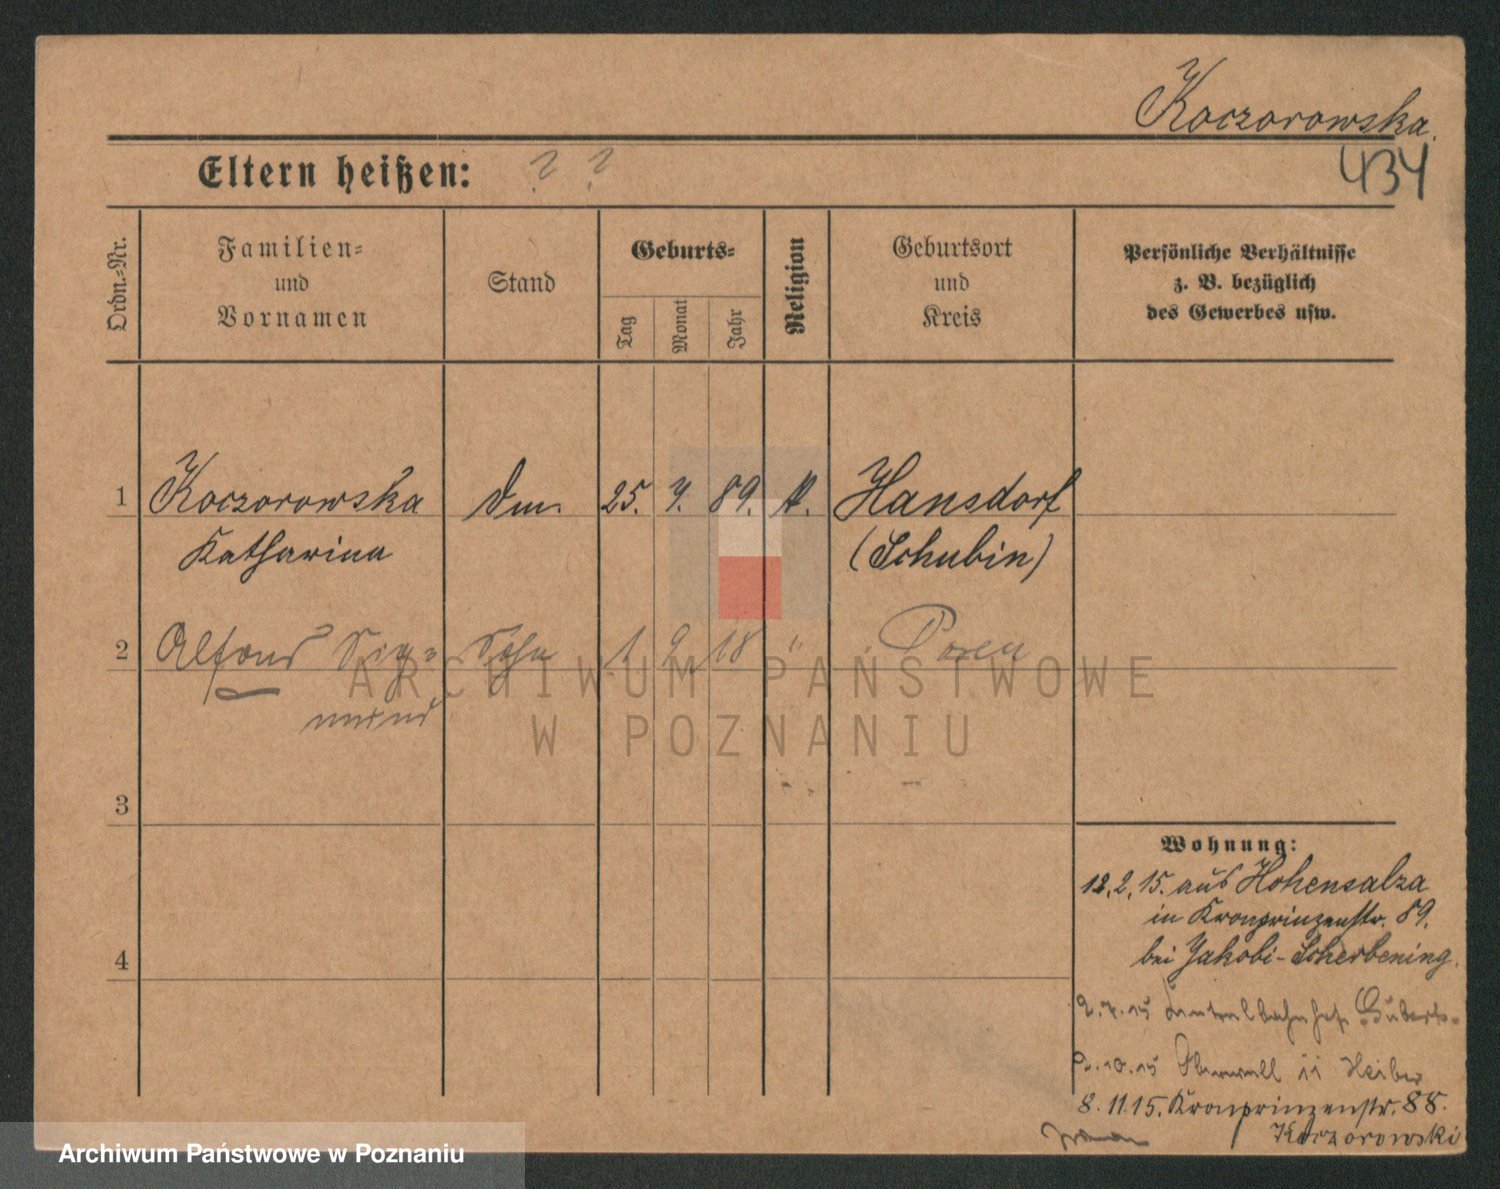 Koczorowska.
434
Eltern heißen: ? ?
Ordn.-Nr.
Familien-
und
Vornamen
Stand
Geburts-
Tag
Monat
Jahr
Religion
Geburtsort
und
Kreis
Persönliche Verhältnisse
z. B. bezüglich
des Gewerbes usw.
1 Koczorowska 25. 89. Hansdorf
Katharina (Schubin)
2 Alfons Sig- Sohn 1 2 18 " Posen
mund
ARCHIWUM PAŃSTWOWE
W POZNANIU
3
4
Wohnung:
12.2.15. aus Hohensalza
in Kronprinzenstr. 89.
bei Jakobi-Scherbening.
2.7.15
2.10.15
8.11.15. Kronprinzenstr. 88.
Koczorowski
Archiwum Państwowe w Poznaniu